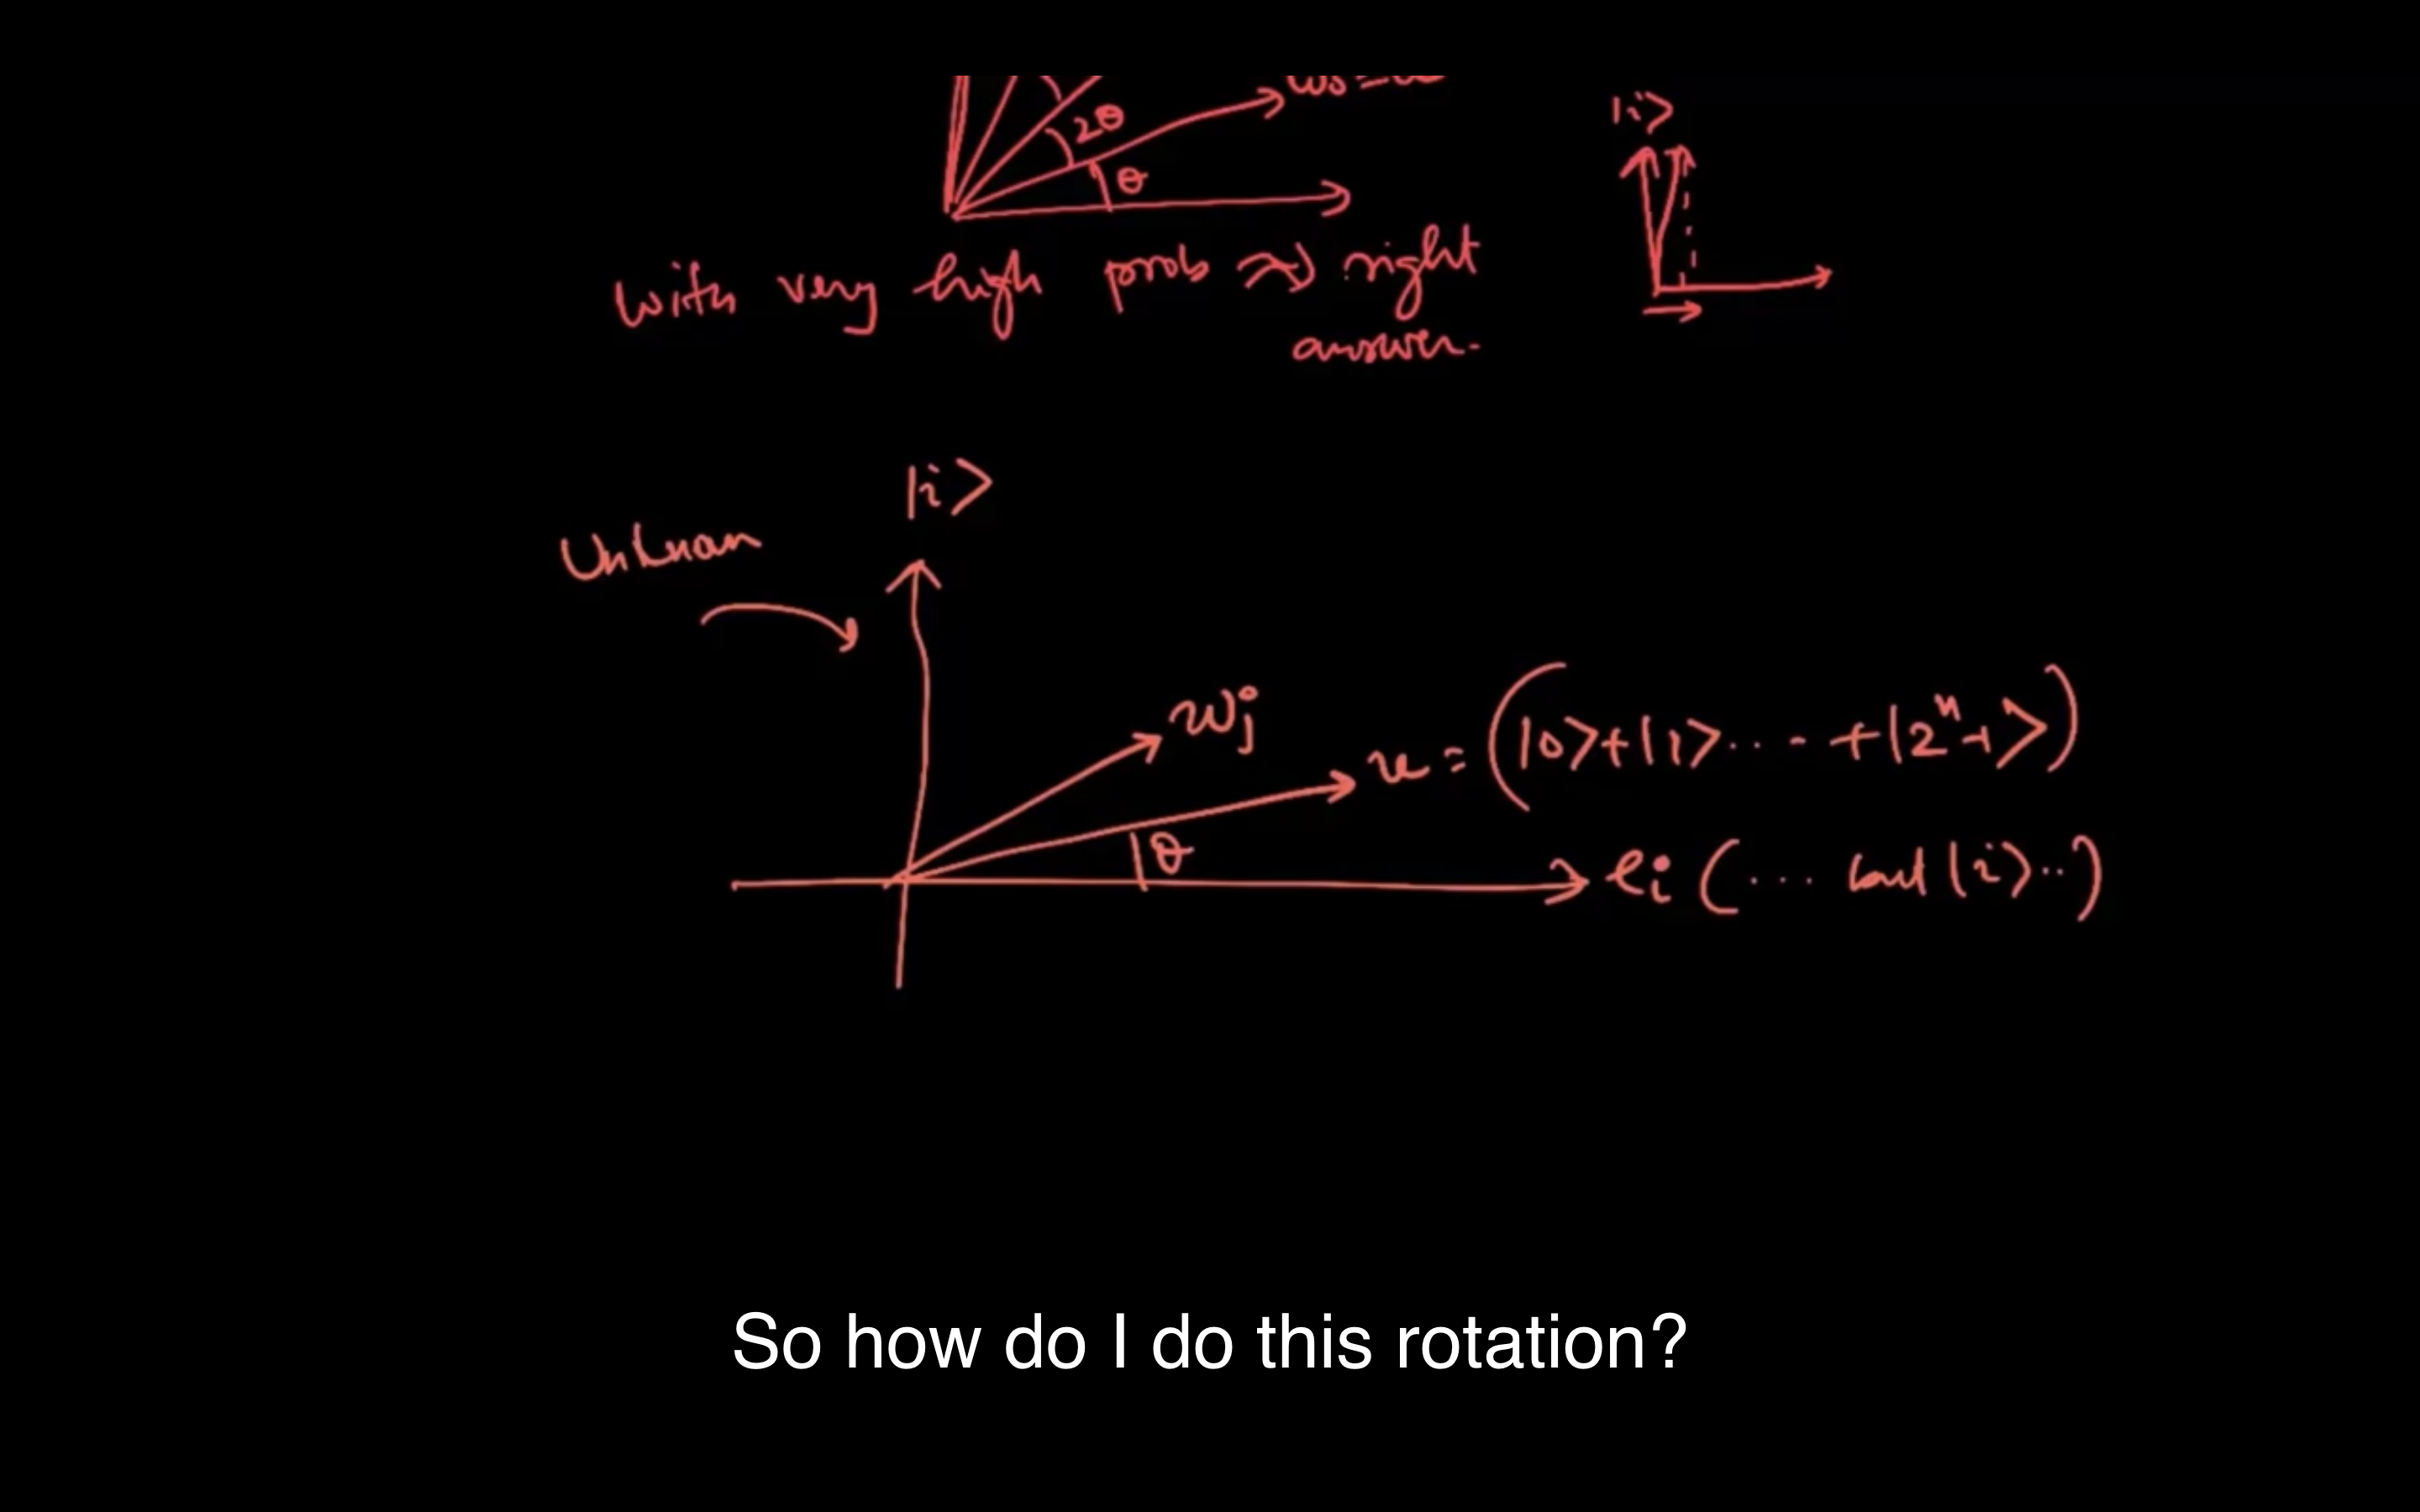 2θ
θ
|i>
with very high prob ≈> right
answer.
|i>
wj
u = (|0>+|1>... - +|2^n-1>)
θ
ei (... |i>..)
So how do I do this rotation?